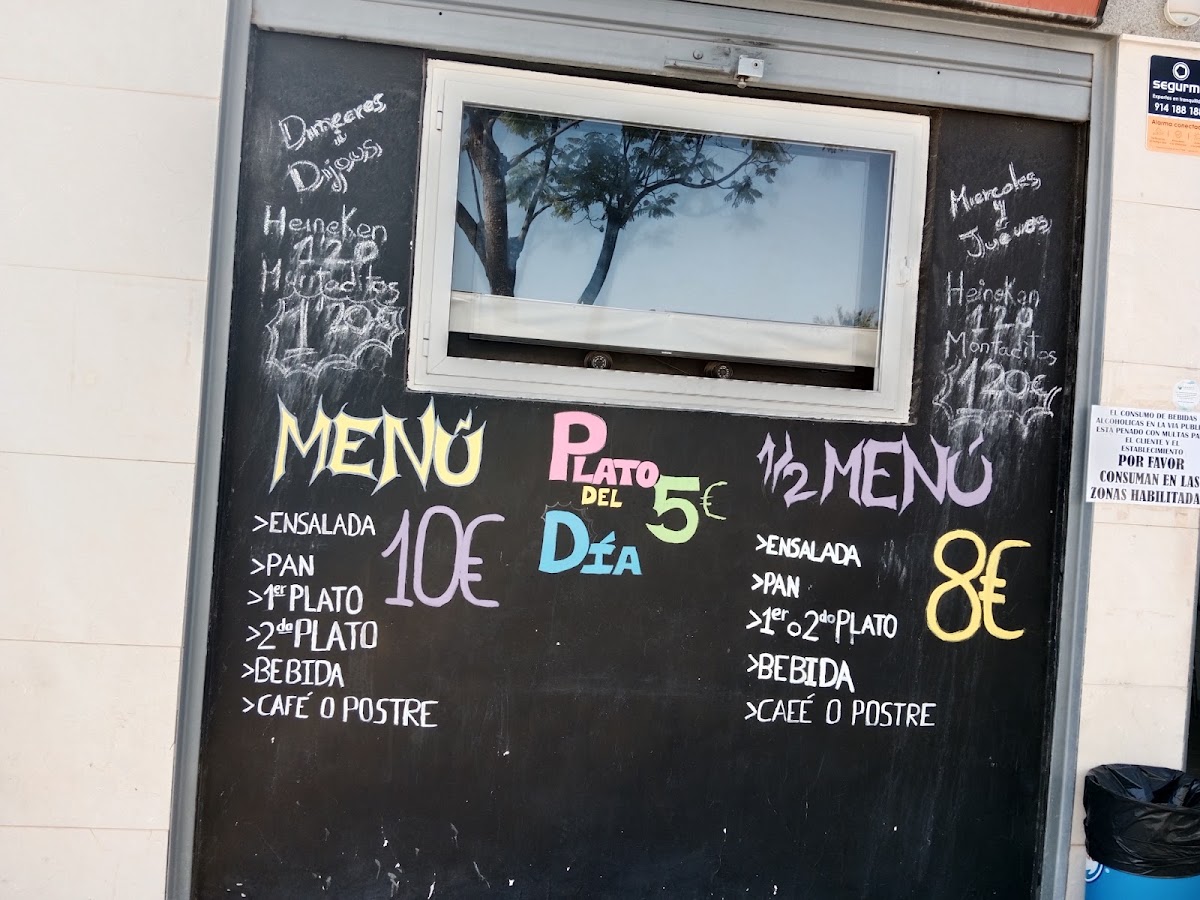 Dimecres
i
Dijous
Heineken
1'20
Muntaditos
1'20€
MENÚ
>ENSALADA
10€
>PAN
>1er PLATO
>2da PLATO
>BEBIDA
>CAFÉ O POSTRE
PLATO
DEL
DÍA
5€
Miercoles
y
Jueves
Heineken
1'20
Montaditos
1'20€
1/2 MENÚ
>ENSALADA
8€
>PAN
>1er o 2do PLATO
>BEBIDA
>CAEÉ O POSTRE
segurm
Expertos en tranquil
914 188 18
Alarma conectad
EL CONSUMO DE BEBIDAS
ALCOHOLICAS EN LA VIA PUBLI
ESTA PENADO CON MULTAS PA
EL CLIENTE Y EL
ESTABLECIMIENTO
POR FAVOR
CONSUMAN EN LAS
ZONAS HABILITADA